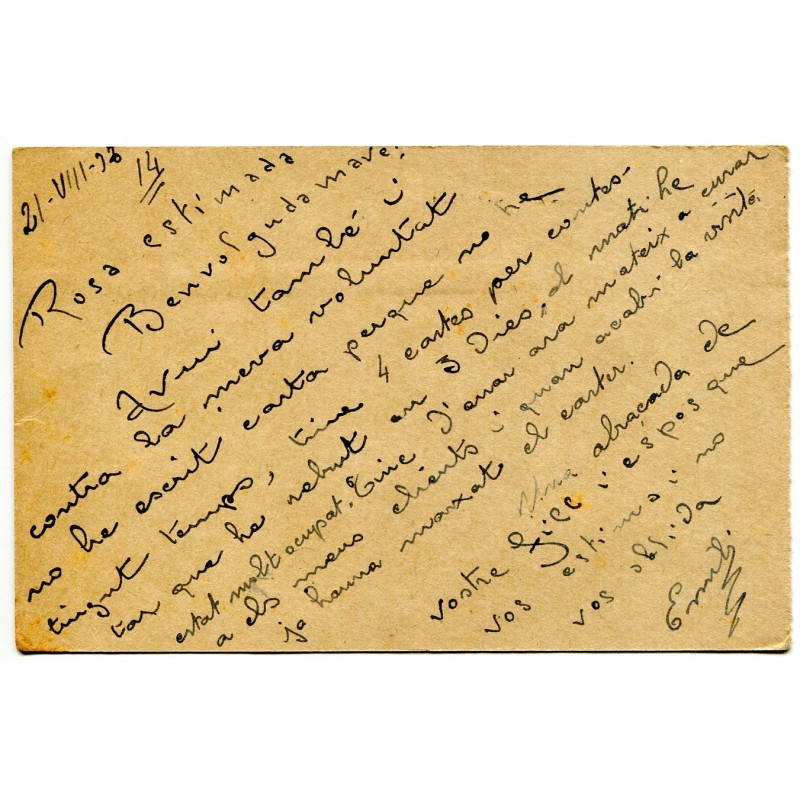 21-VIII-93
14
Rosa estimada
Benvolguda mare:
Avui també i
contra la meva voluntat
no he escrit carta perque no he
tingut temps, tinc 4 cartes per contes-
tar que he rebut en 3 Dies, el matí he
estat molt ocupat. Tinc d'anar ara mateix a curar
a els meus clients i quan acabi la visita
ja haura marxat el carter.
Una abraçada de
vostre fill i espos que
vos estima i no
vos oblida
Emili